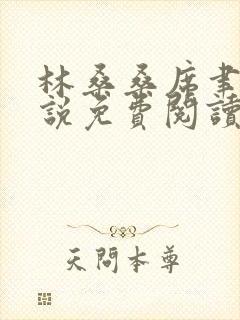 林桑桑席聿
說免費閱讀
天問本尊